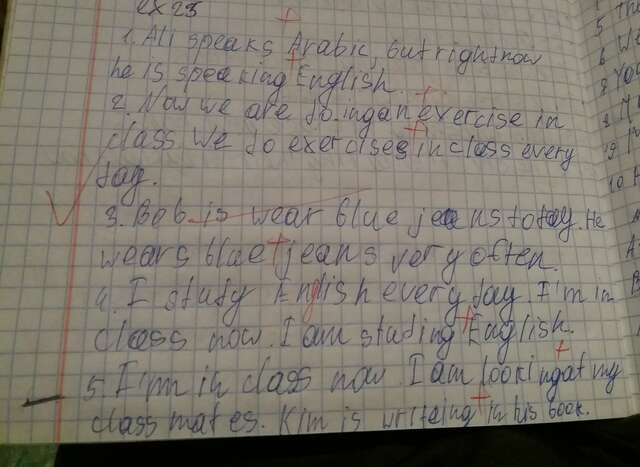 ex 25
1. Ali speaks Arabic, but right now
he is speaking English.
2. Now we are doing an exercise in
class We do exercises in class every
day.
3. Bob is wear blue jeans today. He
wears blue jeans very often.
4. I study English every day. I'm in
class now. I am studing English.
5. I'm in class now. I am looking at my
class mates. Kim is writeing in his book.
5
6
7
8
9
10